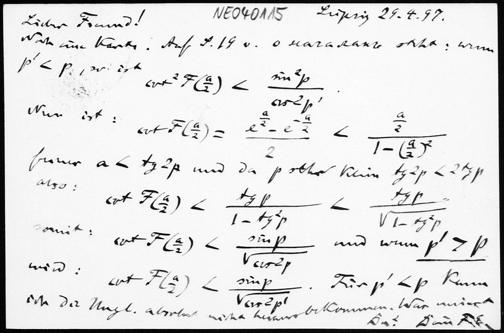 NE040115
Leipzig 29.4.97.
Lieber Freund!
Noch eine Karte. Auf S. 19 v. o начаталахъ steht: wenn
p' < p, so ist cot² F(a/2) < sin² p / cos 2p'.
Nun ist: cot F(a/2) = (e^(a/2) − e^(−a/2)) / 2 < (a/2) / (1 − (a/2)²)
ferner a < tg 2p und da p sehr klein tg 2p < 2 tg p
also: cot F(a/2) < tg p / (1 − tg² p) < tg p / √(1 − tg² p)
somit: cot F(a/2) < sin p / √(cos 2p) und wenn p' > p
wird: cot F(a/2) < sin p / √(cos 2p'). Für p' < p kann
ich die Ungl. absolut nicht herausbekommen. Was meinst
Du? Dein F. E.